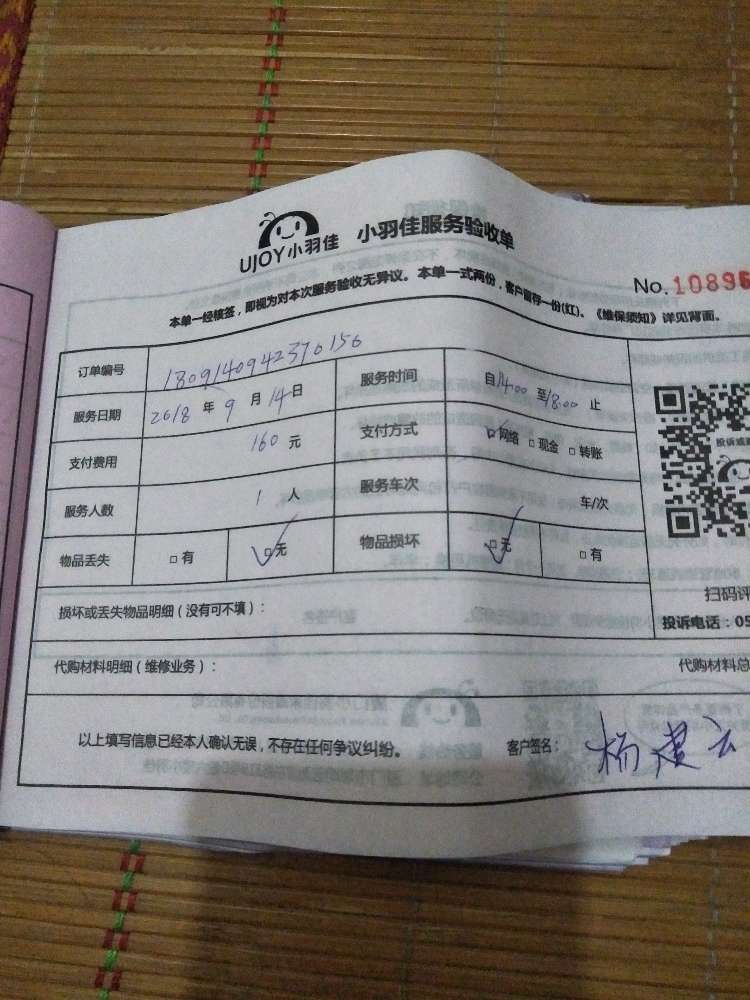 UJOY小羽佳 小羽佳服务验收单
No.10896
本单一经核签，即视为对本次服务验收无异议。本单一式两份，客户留存一份(红)。《维保须知》详见背面。
订单编号 1809140942370156 服务时间 自14:00 至18:00 止
服务日期 2018 年 9 月 14 日
支付费用 160 元 支付方式 □网络 □现金 □转账
服务人数 1 人 服务车次 车/次
物品丢失 □有 □无 物品损坏 □无 □有
损坏或丢失物品明细（没有可不填）：
扫码评
投诉电话：05
代购材料明细（维修业务）： 代购材料总
以上填写信息已经本人确认无误，不存在任何争议纠纷。 客户签名：杨建云